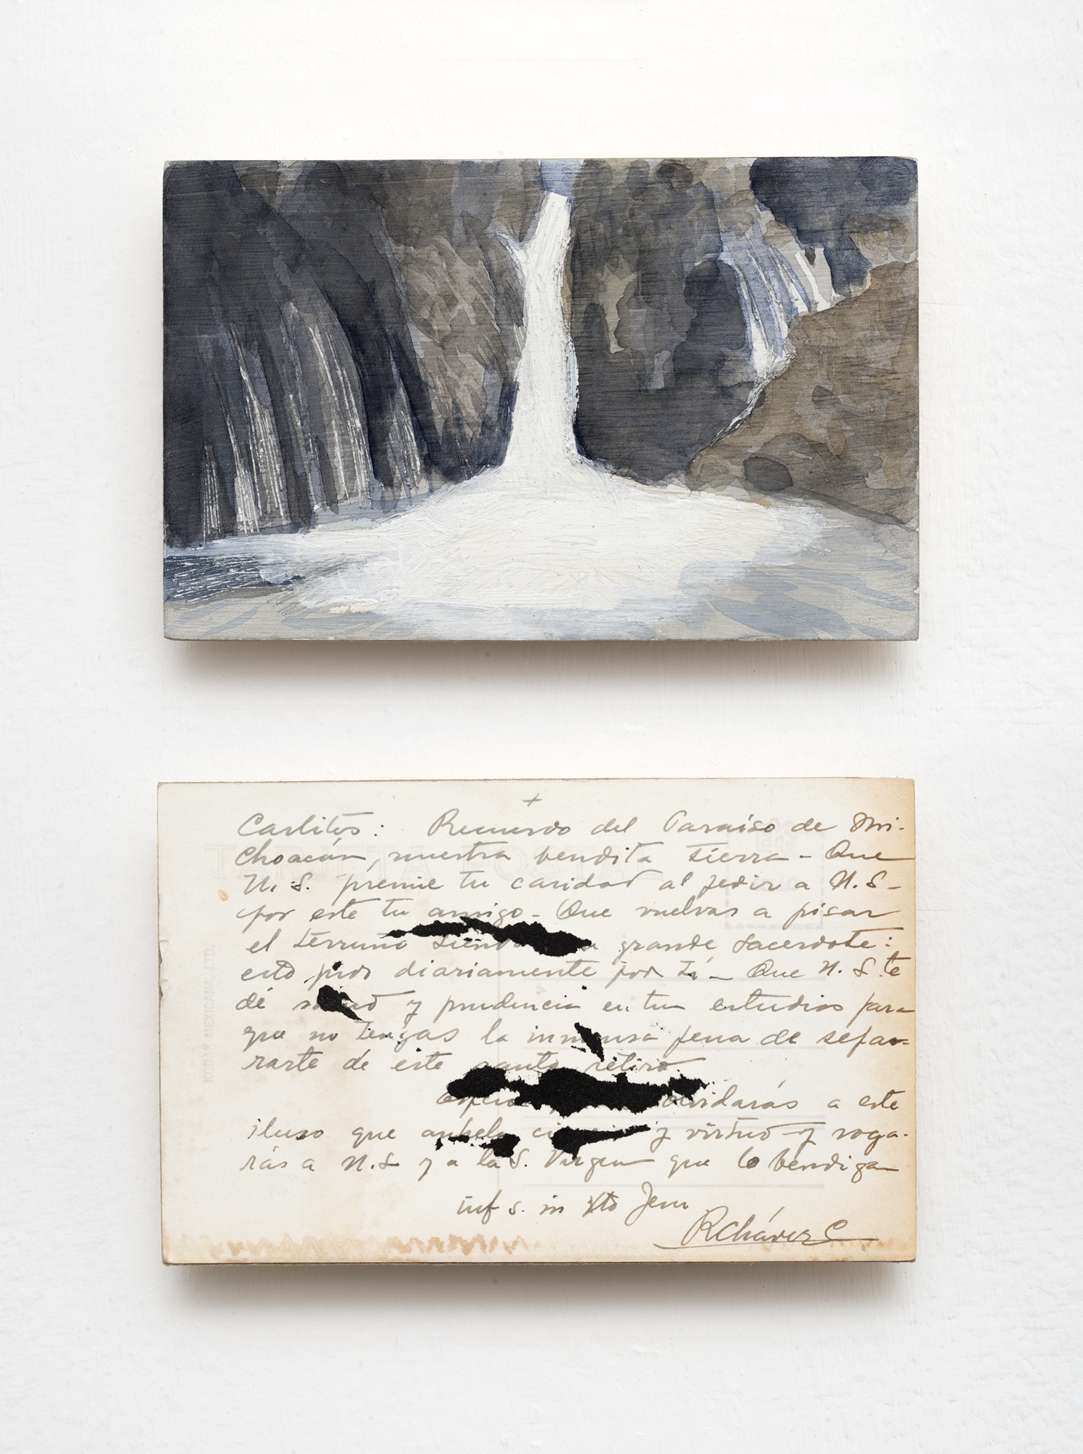 +
Carlitos: Recuerdo del Paraíso de Mi-
choacán, nuestra bendita tierra - Que
N. S. premie tu caridad al pedir a N. S-
por este tu amigo - Que vuelvas a pisar
el terruño siendo grande Sacerdote:
esto pido diariamente por tí - Que N. S. te
dé salud y prudencia en tus estudios para
que no tengas la inmensa pena de sepa-
rarte de este santo retiro
olvidarás a este
iluso que anhela ciencia y virtud y roga-
rás a N. S y a la S. Virgen que lo bendiga
inf s. in Xto Jesu
RChávez C